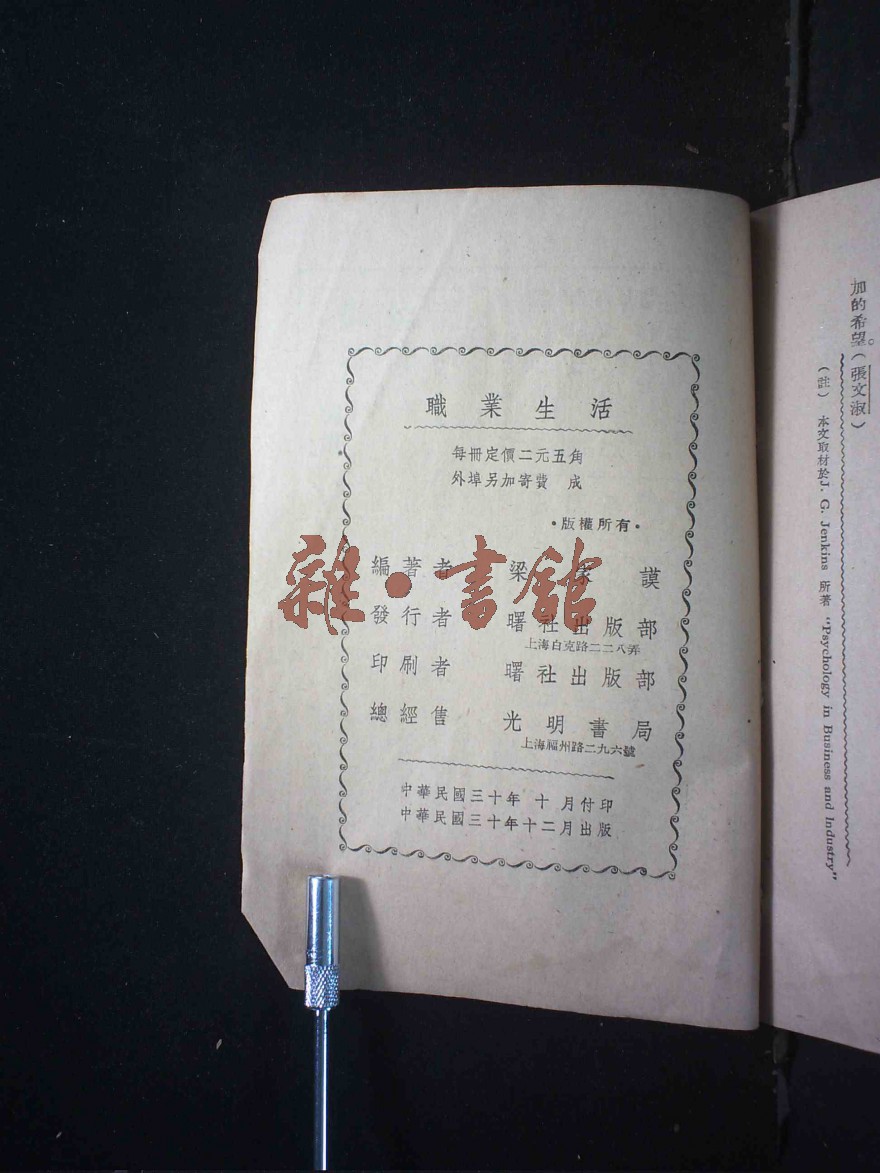 加的希望。(張文淑)
(註) 本文取材於J. G. Jenkins 所著 "Psychology in Business and Industry"
職業生活
每冊定價二元五角
外埠另加寄費 成
•版權所有•
編著者 梁 謨
發行者 曙社出版部
上海白克路二二八弄
印刷者 曙社出版部
總經售 光明書局
上海福州路二九六號
中華民國三十年 十 月付印
中華民國三十年十二月出版
雜•書館